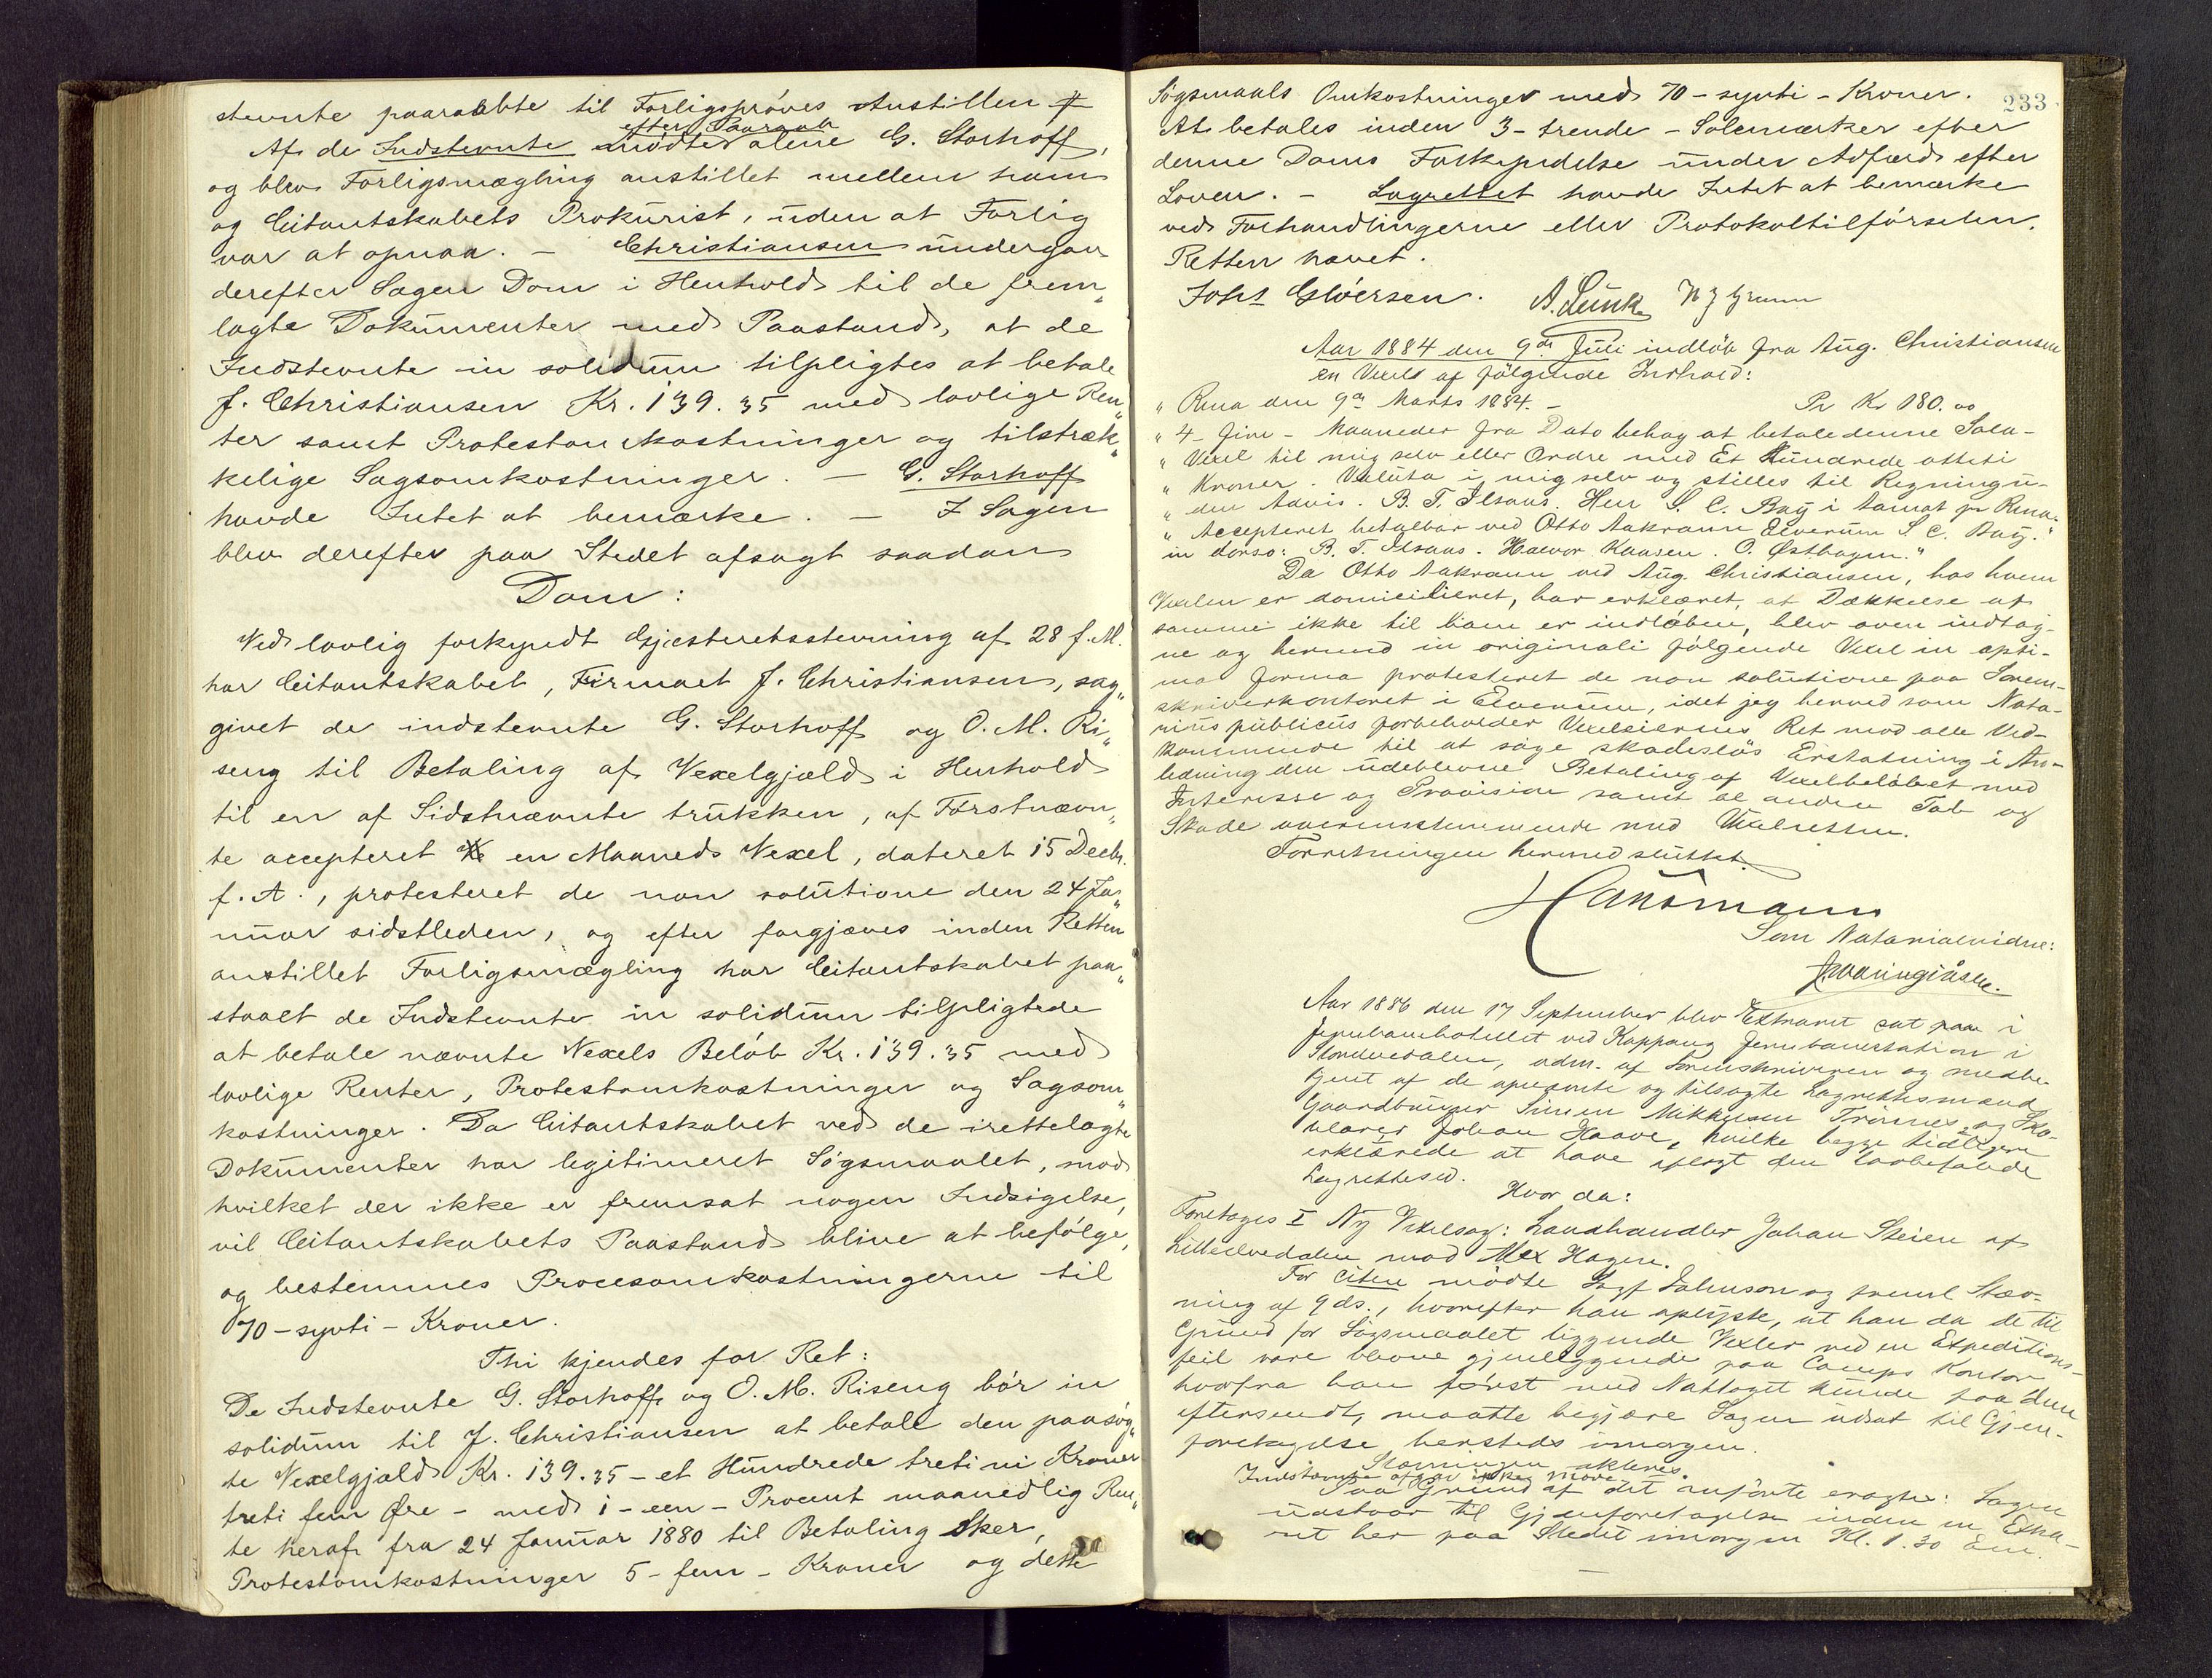 stevnte paaraabte til Forligsprøves Anstillen #
efter Paaraab
Af de Indstevnte mødte alene G. Storhoff,
og blev Forligsmægling anstillet mellem ham
og Citantskabets Prokurist, uden at Forlig
var at opnaa. – Christiansen undergav
derefter Sagen Dom i Henhold til de frem„
lagte Dokumenter med Paastand, at de
Indstevnte in solidum tilpligtes at betale
J. Christiansen Kr. 139.35 med lovlige Ren„
ter samt Protestomkostninger og tilstræk„
kelige Sagsomkostninger. — G. Storhoff
havde Intet at bemærke. — I Sagen
blev derefter paa Stedet afsagt saadan
Dom:
Ved lovlig forkyndt Gjæsteretsstevning af 28 f. M.
har Citantskabet, Firmaet J. Christiansen, sag„
givet de indstevnte G. Storhoff og O. M. Ri„
seng til Betaling af Vexelgjæld i Henhold
til en af Sidstnævnte trukken, af Førstnævn„
te accepteret en Maaneds Vexel, dateret 15 Decbr.
f. A., protesteret de non solutione den 24 Ja„
nuar sidstleden, og efter forgjæves inden Retten
anstillet Forligsmægling har Citantskabet paa„
staaet de Indstevnte in solidum tilpligtede
at betale nævnte Vexels Beløb Kr. 139.35 med
lovlige Renter, Protestomkostninger og Sagsom„
kostninger. Da Citantskabet ved de irettelagte
Dokumenter har legitimeret Søgsmaalet, mod
hvilket der ikke er fremsat nogen Indsigelse,
vil Citantskabets Paastand blive at befølge,
og bestemmes Procesomkostningerne til
70 – sytti – Kroner.
Thi kjendes for Ret:
De Indstevnte G. Storhoff og O. M. Riseng bør in
solidum til J. Christiansen at betale den paasøg„
te Vexelgjæld Kr. 139.35 – et Hundrede treti ni Kroner
treti fem Øre – med 1 – een – Procent maanedlig Ren„
te heraf fra 24 Januar 1880 til Betaling sker,
Protestomkostninger 5 – fem – Kroner og dette
233
Søgsmaals Omkostninger med 70 – sytti – Kroner.
At betales inden 3 – trende – Solemærker efter
denne Doms Forkyndelse under Adfærd efter
Loven. – Lagrettet havde Intet at bemærke
ved Forhandlingerne eller Protokoltilførselen.
Retten hævet.
Johs Gløersen. A. Lunk
Aar 1884 den 9de Juli indløb fra Aug. Christiansen
en Vexel af følgende Indhold:
„ Rena den 9de Marts 1884. – Pr Kr 180.00
„ 4 – fire – Maaneder fra Dato behag at betale denne Sola-
„ Vexel til mig selv eller Ordre med Et Hundrede otteti
„ Kroner. Valuta i mig selv og stilles til Regning u-
„ den Advis. B. T. Ilsaas. Herr S. C. Bay i Aamot pr Rena.
„ Accepteret betalbar ved Otto Aakrann Elverum S. C. Bay."
in dorso: B. T. Ilsaas. Halvor Kaasen. O. Østhagen."
Da Otto Aakrann ved Aug. Christiansen, hos hvem
Vexlen er domicilieret, har erklæret, at Dækkelse af
samme ikke til ham er indløben, blev oven indtag-
ne og hermed in originali følgende Vexel in opti-
ma forma protesteret de non solutione paa Soren-
skriverkontoret i Elverum, idet jeg herved som Nota-
rius publicus forbeholder Vexeleiernes Ret mod alle Ved-
kommende til at søge skadesløs Erstatning i An-
ledning den udeblevne Betaling af Vexelbeløbet med
Interesse og Provision samt al anden Tab og
Skade overensstemmende med Vexelretten.
Forretningen hermed sluttet.
Hansmann
Som Notarialvidne:
Aar 1886 den 17 September blev Extraret sat paa i
Jernbanehotellet ved Koppang Jernbanestation i
Storelvedalen, adm. af Sorenskriveren og medbe-
tjent af de opnævnte og tilsagte Lagrettesmænd
Gaardbruger Simen Mikkelsen Trønnes og Sko-
Johan Haave, hvilke begge tidligere
erklærede at have aflagt den lovbefalede
Lagrettesed.
Hvor da:
Foretoges I Ny Vexelsag: Landhandler Johan Steien af
Lilleelvedalen mod Alex Hagen.
For Citen mødte Sagf Johnson og freml Stæv-
ning af 9 ds., hvorefter han oplyste, at han da de til
Grund for Søgsmaalet liggende Vexler ved en Expeditions-
feil vare blevne gjenliggende paa Camps Kontor
hvorfra han først med Nattoget kunde faa dem
eftersendt, maatte begjære Sagen udsat til Gjen-
foretagelse hersteds imorgen.
Stævningen akteres.
Indstævnte afgav ikke Møde
Paa Grund af det anførte eragtes: Sagen
udstaar til Gjenforetagelse inden en Extra-
ret her paa Stedet imorgen Kl. 1.30 Em.